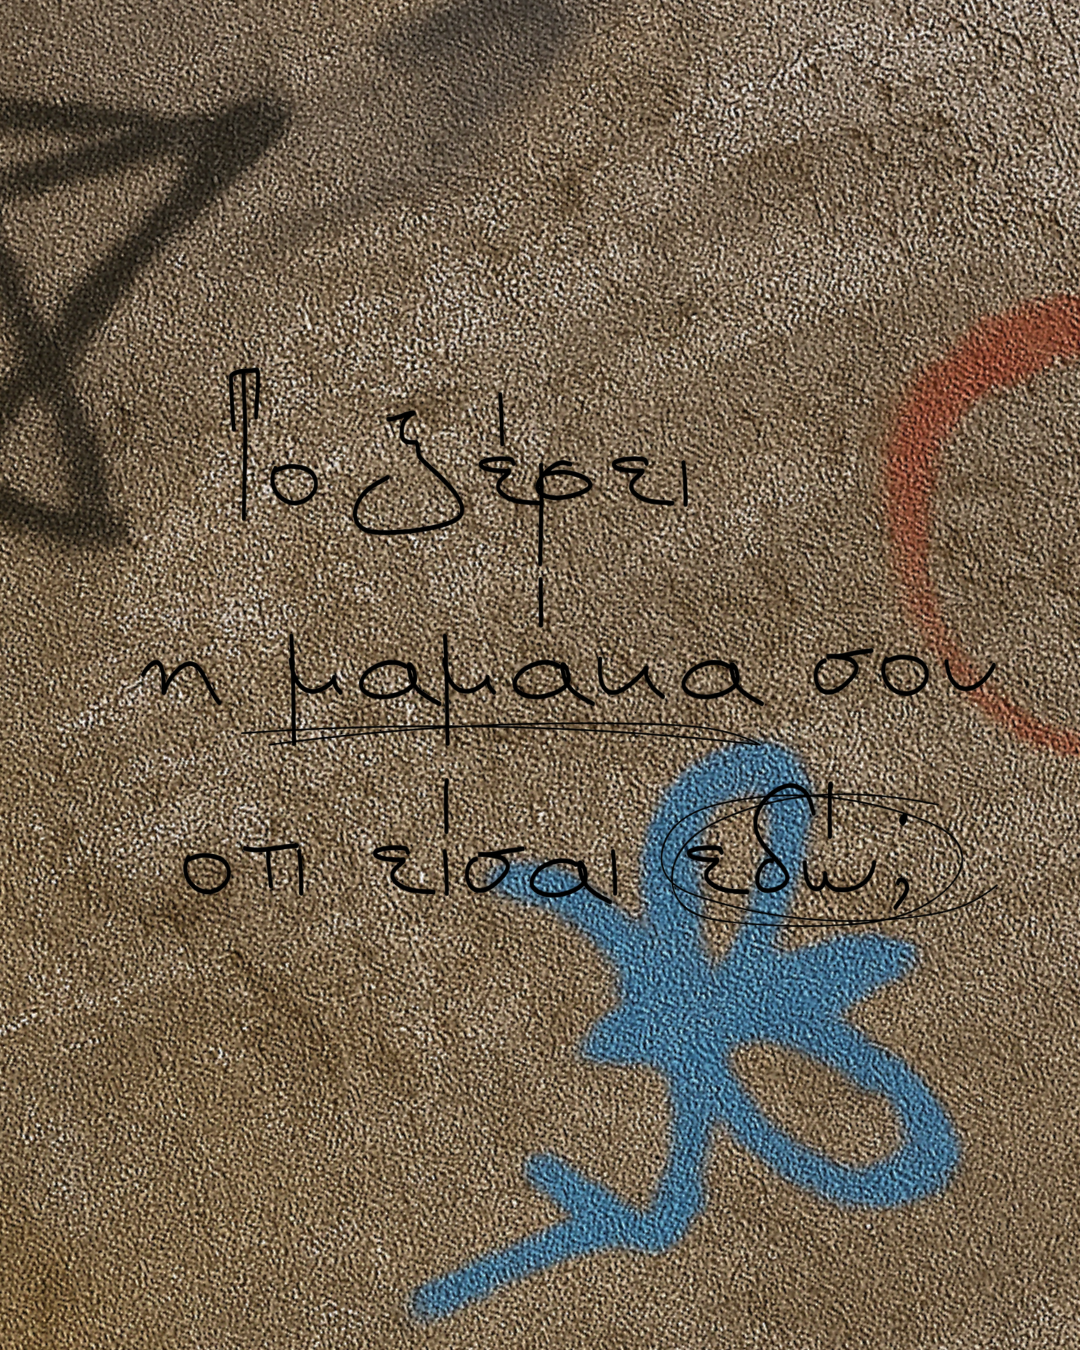 Το ξέρει
η μαμακα σου
οτι εισαι εδώ;